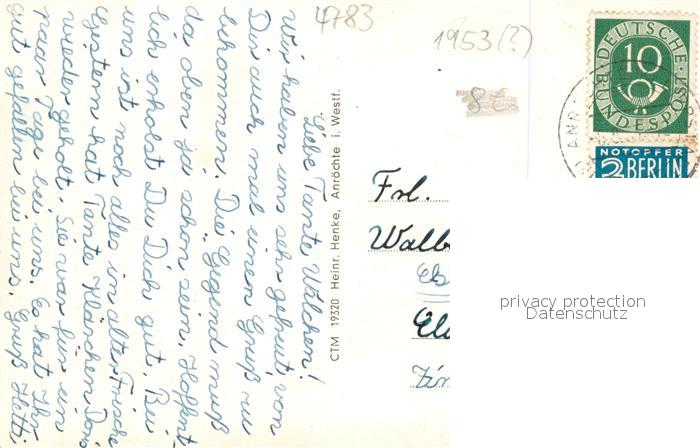 4783
1953(?)
8€
DEUTSCHE
10
BUNDESPOST
NOTOPFER
2 BERLIN
Liebe Tante Wälchen!
Wir haben uns sehr gefreut, von
Dir auch mal einen Gruß zu
bekommen. Die Gegend muß
da oben ja schön sein. Hoffent
lich erholst Du Dich gut. Bei
uns ist noch alles in alter Frische
Gestern hat Tante Klärchen Doris
wieder geholt. Sie war für ein
paar Tage bei uns. Es hat Ihr
gut gefallen bei uns. Gruß Hetti
CTM 19320 Heinr. Henke, Anröchte i. Westf.
Frl.
Walb
Els
privacy protection
Datenschutz